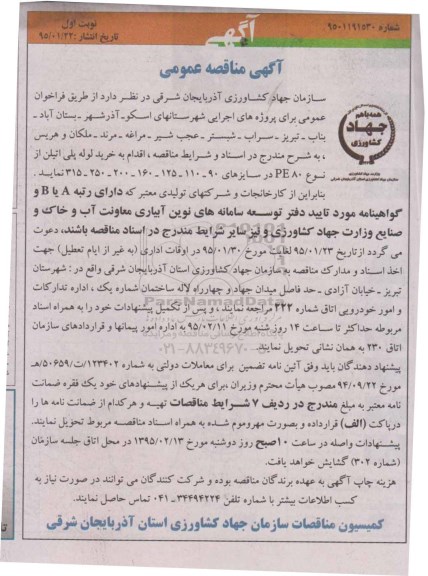 شماره ۹۵۰۱۱۹۱۵۳۰
آگهی
نوبت اول
تاریخ انتشار: ۹۵/۰۱/۲۲
آگهی مناقصه عمومی
همه با هم
جهاد
کشاورزی
سازمان جهاد کشاورزی آذربایجان شرقی در نظر دارد از طریق فراخوان
عمومی برای پروژه های اجرایی شهرستانهای اسکو-آذرشهر -بستان آباد -
بناب - تبریز - سراب - شبستر - عجب شیر - مراغه - مرند - ملکان و هریس
، به شرح مندرج در اسناد و شرایط مناقصه ، اقدام به خرید لوله پلی اتیلن از
نوع PE ۸۰ در سایزهای ۹۰ - ۱۱۰ - ۱۲۵ - ۱۶۰ - ۲۰۰ - ۲۵۰ - ۳۱۵ نماید .
بنابراین از کارخانجات و شرکتهای تولیدی معتبر که دارای رتبه A یا B و
گواهینامه مورد تایید دفتر توسعه سامانه های نوین آبیاری معاونت آب و خاک و
صنایع وزارت جهاد کشاورزی و نیز سایر شرایط مندرج در اسناد مناقصه باشند، دعوت
می گردد از تاریخ ۹۵/۰۱/۲۳ لغایت مورخ ۹۵/۰۱/۳۰ در اوقات اداری (به غیر از ایام تعطیل) جهت
اخذ اسناد و مدارک مناقصه به سازمان جهاد کشاورزی استان آذربایجان شرقی واقع در : شهرستان
تبریز - خیابان آزادی - حد فاصل میدان جهاد و چهارراه لاله ساختمان شماره یک ، اداره تدارکات
و امور خودرویی اتاق شماره ۲۲۳ مراجعه نمایند ، و پس از تکمیل پیشنهادات خود را به همراه اسناد
مربوطه حداکثر تا ساعت ۱۴ روز شنبه مورخ ۹۵/۰۲/۱۱ به اداره امور پیمانها و قراردادهای سازمان
اتاق ۲۳۰ به همان نشانی تحویل نمایند.
پیشنهاد دهندگان باید وفق آئین نامه تضمین برای معاملات دولتی به شماره ۱۲۳۴۰۲/ت۵۰۶۵۹هـ
مورخ ۹۴/۰۹/۲۲ مصوب هیأت محترم وزیران، برای هریک از پیشنهادهای خود یک فقره ضمانت
نامه معتبر به مبلغ مندرج در ردیف ۷ شرایط مناقصات تهیه و هر کدام از ضمانت نامه ها را
درپاکت (الف) قرارداده و بصورت مهروموم شده به همراه اسناد مناقصه مربوط تحویل نمایند.
پیشنهادات واصله در ساعت ۱۰صبح روز دوشنبه مورخ ۱۳۹۵/۰۲/۱۳ در محل اتاق جلسه سازمان
(شماره ۳۰۲) گشایش خواهد یافت.
هزینه چاپ آگهی به عهده برندگان مناقصه بوده و شرکت کنندگان می توانند در صورت نیاز به
کسب اطلاعات بیشتر با شماره تلفن ۳۴۴۹۴۲۲۴-۰۴۱ تماس حاصل نمایند.
کمیسیون مناقصات سازمان جهاد کشاورزی استان آذربایجان شرقی
ParsNamadData
۰۲۱-۸۸۳۴۹۶۷۰